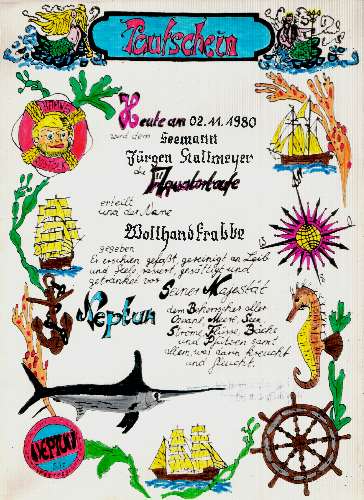 Taufschein
Heute am 02.11.1980
wird dem
Seemann
Jürgen Stallmeyer
die
Äquatortaufe
erteilt
und der Name
Wollhandkrabbe
gegeben
Er erschien gefaßt, gereinigt an Leib
und Seele, rasiert, gesättigt und
getränkt vor
Seiner Majestät
Neptun
dem Beherrscher aller
Ozeane, Meere, Seen,
Ströme, Flüsse, Bäche
und Pfützen samt
allem, was darin kreucht
und fleucht.
NEPTUN